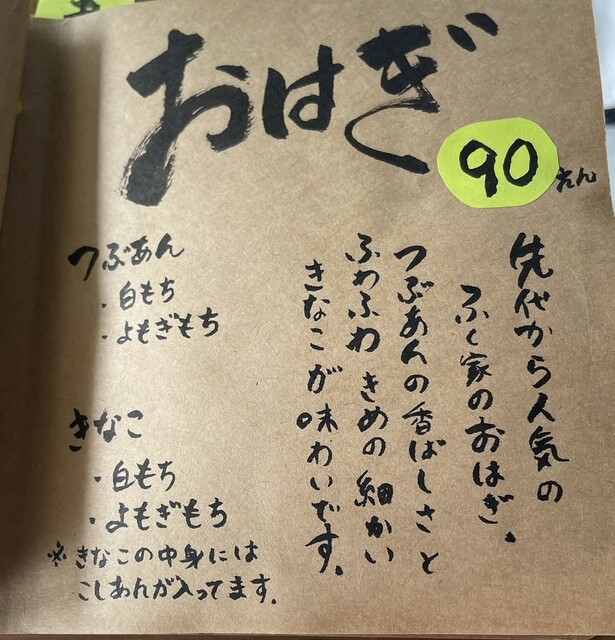 おはぎ
90
えん
先代から人気の
ふく家のおはぎ。
つぶあんの香ばしさと
ふわふわ きめの細かい
きなこが味わいです。
つぶあん
・白もち
・よもぎもち
きなこ
・白もち
・よもぎもち
※きなこの中身には
こしあんが入ってます。